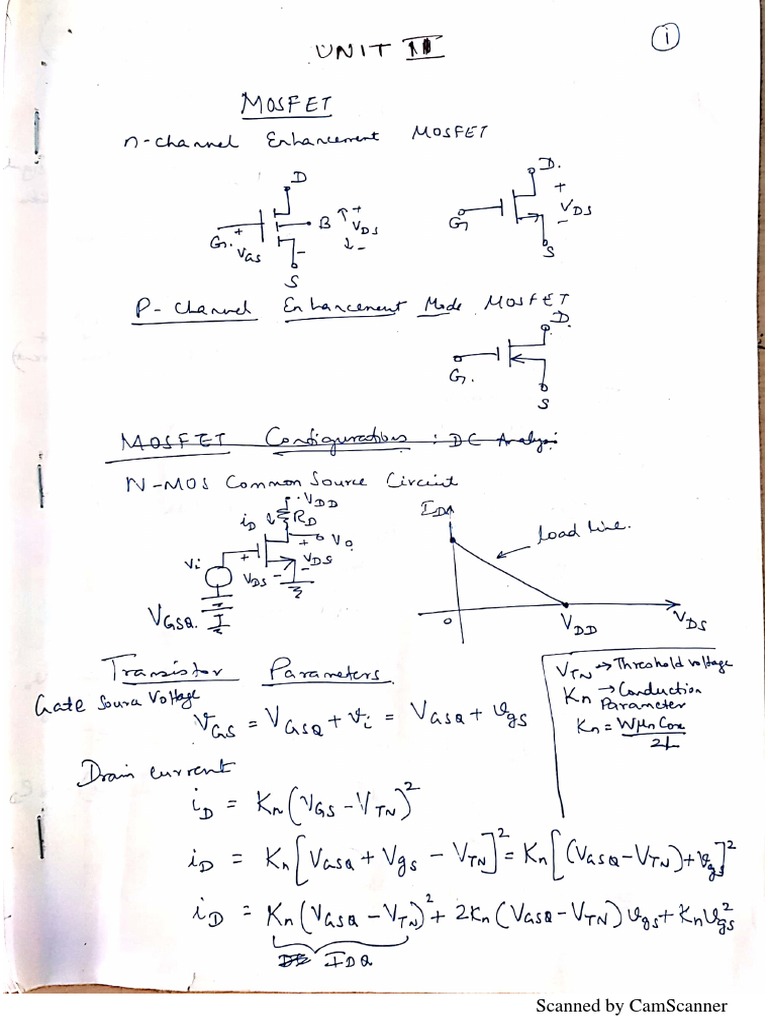 UNIT II
1
MOSFET
n-channel Enhancement MOSFET
D
G
+
VGS
-
B
+
VDS
-
S
D.
G
+
VDS
-
S
P-Channel Enhancement Mode MOSFET
D.
G.
S
MOSFET Configurations : DC Analysis
N-MOS Common Source Circuit
VDD
iD RD
+ Vo
Vi + VDS
VDS - -
VGSQ.
ID
Load line.
0 VDD VDS
Transistor Parameters
Gate Source Voltage
VGS = VGSQ + vi = VGSQ + vgs
VTN → Threshold voltage
Kn → Conduction
Parameter
Kn = WμnCox
2L
Drain current
iD = Kn(VGS - VTN)²
iD = Kn[VGSQ + Vgs - VTN]² = Kn[(VGSQ - VTN) + vgs]²
iD = Kn(VGSQ - VTN)² + 2Kn(VGSQ - VTN)vgs + Knvgs²
IDQ
Scanned by CamScanner